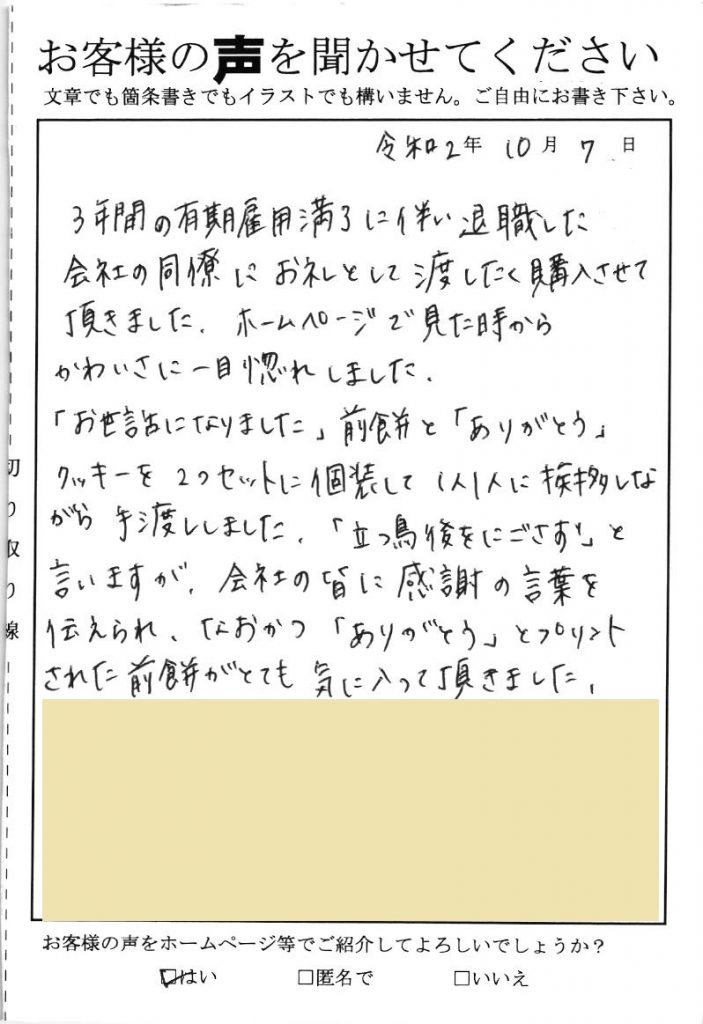 お客様の声を聞かせてください
文章でも箇条書きでもイラストでも構いません。ご自由にお書き下さい。
令和2年 10月 7日
3年間の有期雇用満了に伴い退職した
会社の同僚にお礼として渡したく購入させて
頂きました。ホームページで見た時から
かわいさに一目惚れしました。
「お世話になりました」前餅と「ありがとう」
クッキーを2つセットに個装して1人1人に挨拶しな
がら手渡ししました。「立つ鳥後をにごさず」と
言いますが、会社の皆に感謝の言葉を
伝えられ、なおかつ「ありがとう」とプリント
された前餅がとても気に入って頂きました。
切り取り線
お客様の声をホームページ等でご紹介してよろしいでしょうか？
☑はい □匿名で □いいえ